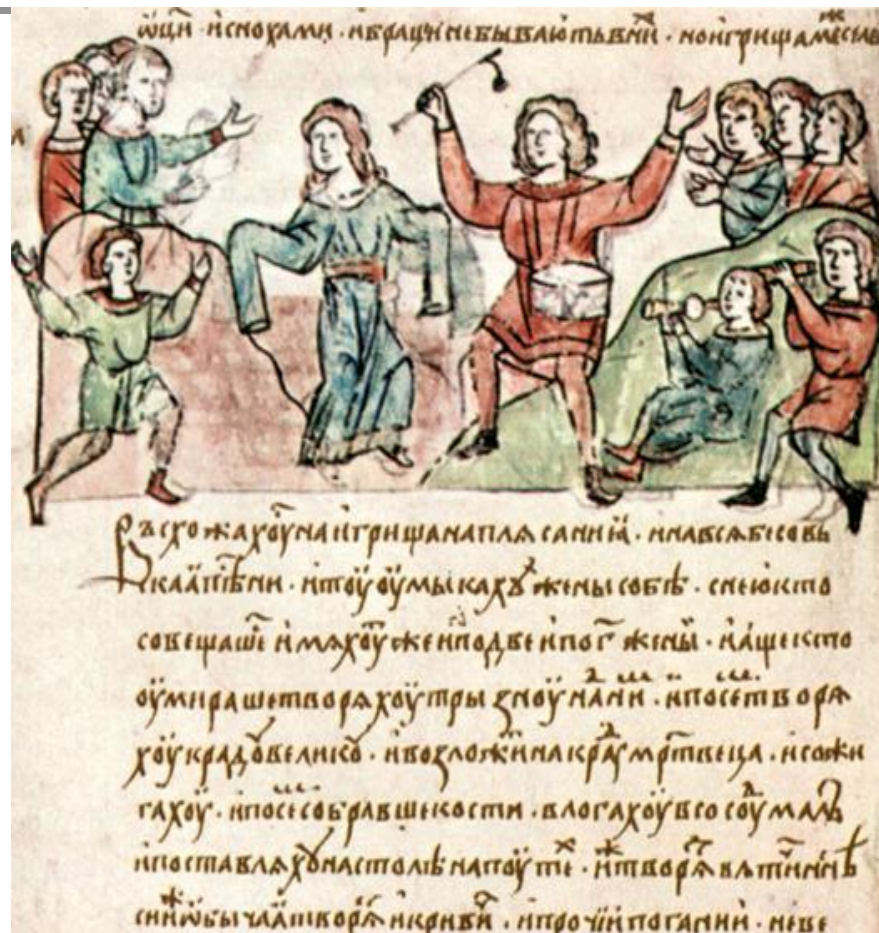 ѿци · и снохами · и браци не бывають в ниͯ · но игрища
въсхожахоу на игрища на плясаниꙗ · и на вся бесовь
скаꙗ пѣсни · и тоу оумыкахꙋ жены собѣ · с нею кто
совещаше имяхоу же и по две и по г҃ жены · и аще кто
оумираше творяхоу тризноу на ни · и посе творя
хоу кладоу великоу · и возложи на краду мрт҃веца · и сожи
гахоу · и посе собравше кости · влогахоу в сосоу малъ
и поставляхоу на столпѣ на поуте · творя вятичи
си ѡбычаꙗ творя и криви · и прочии погании · не ве